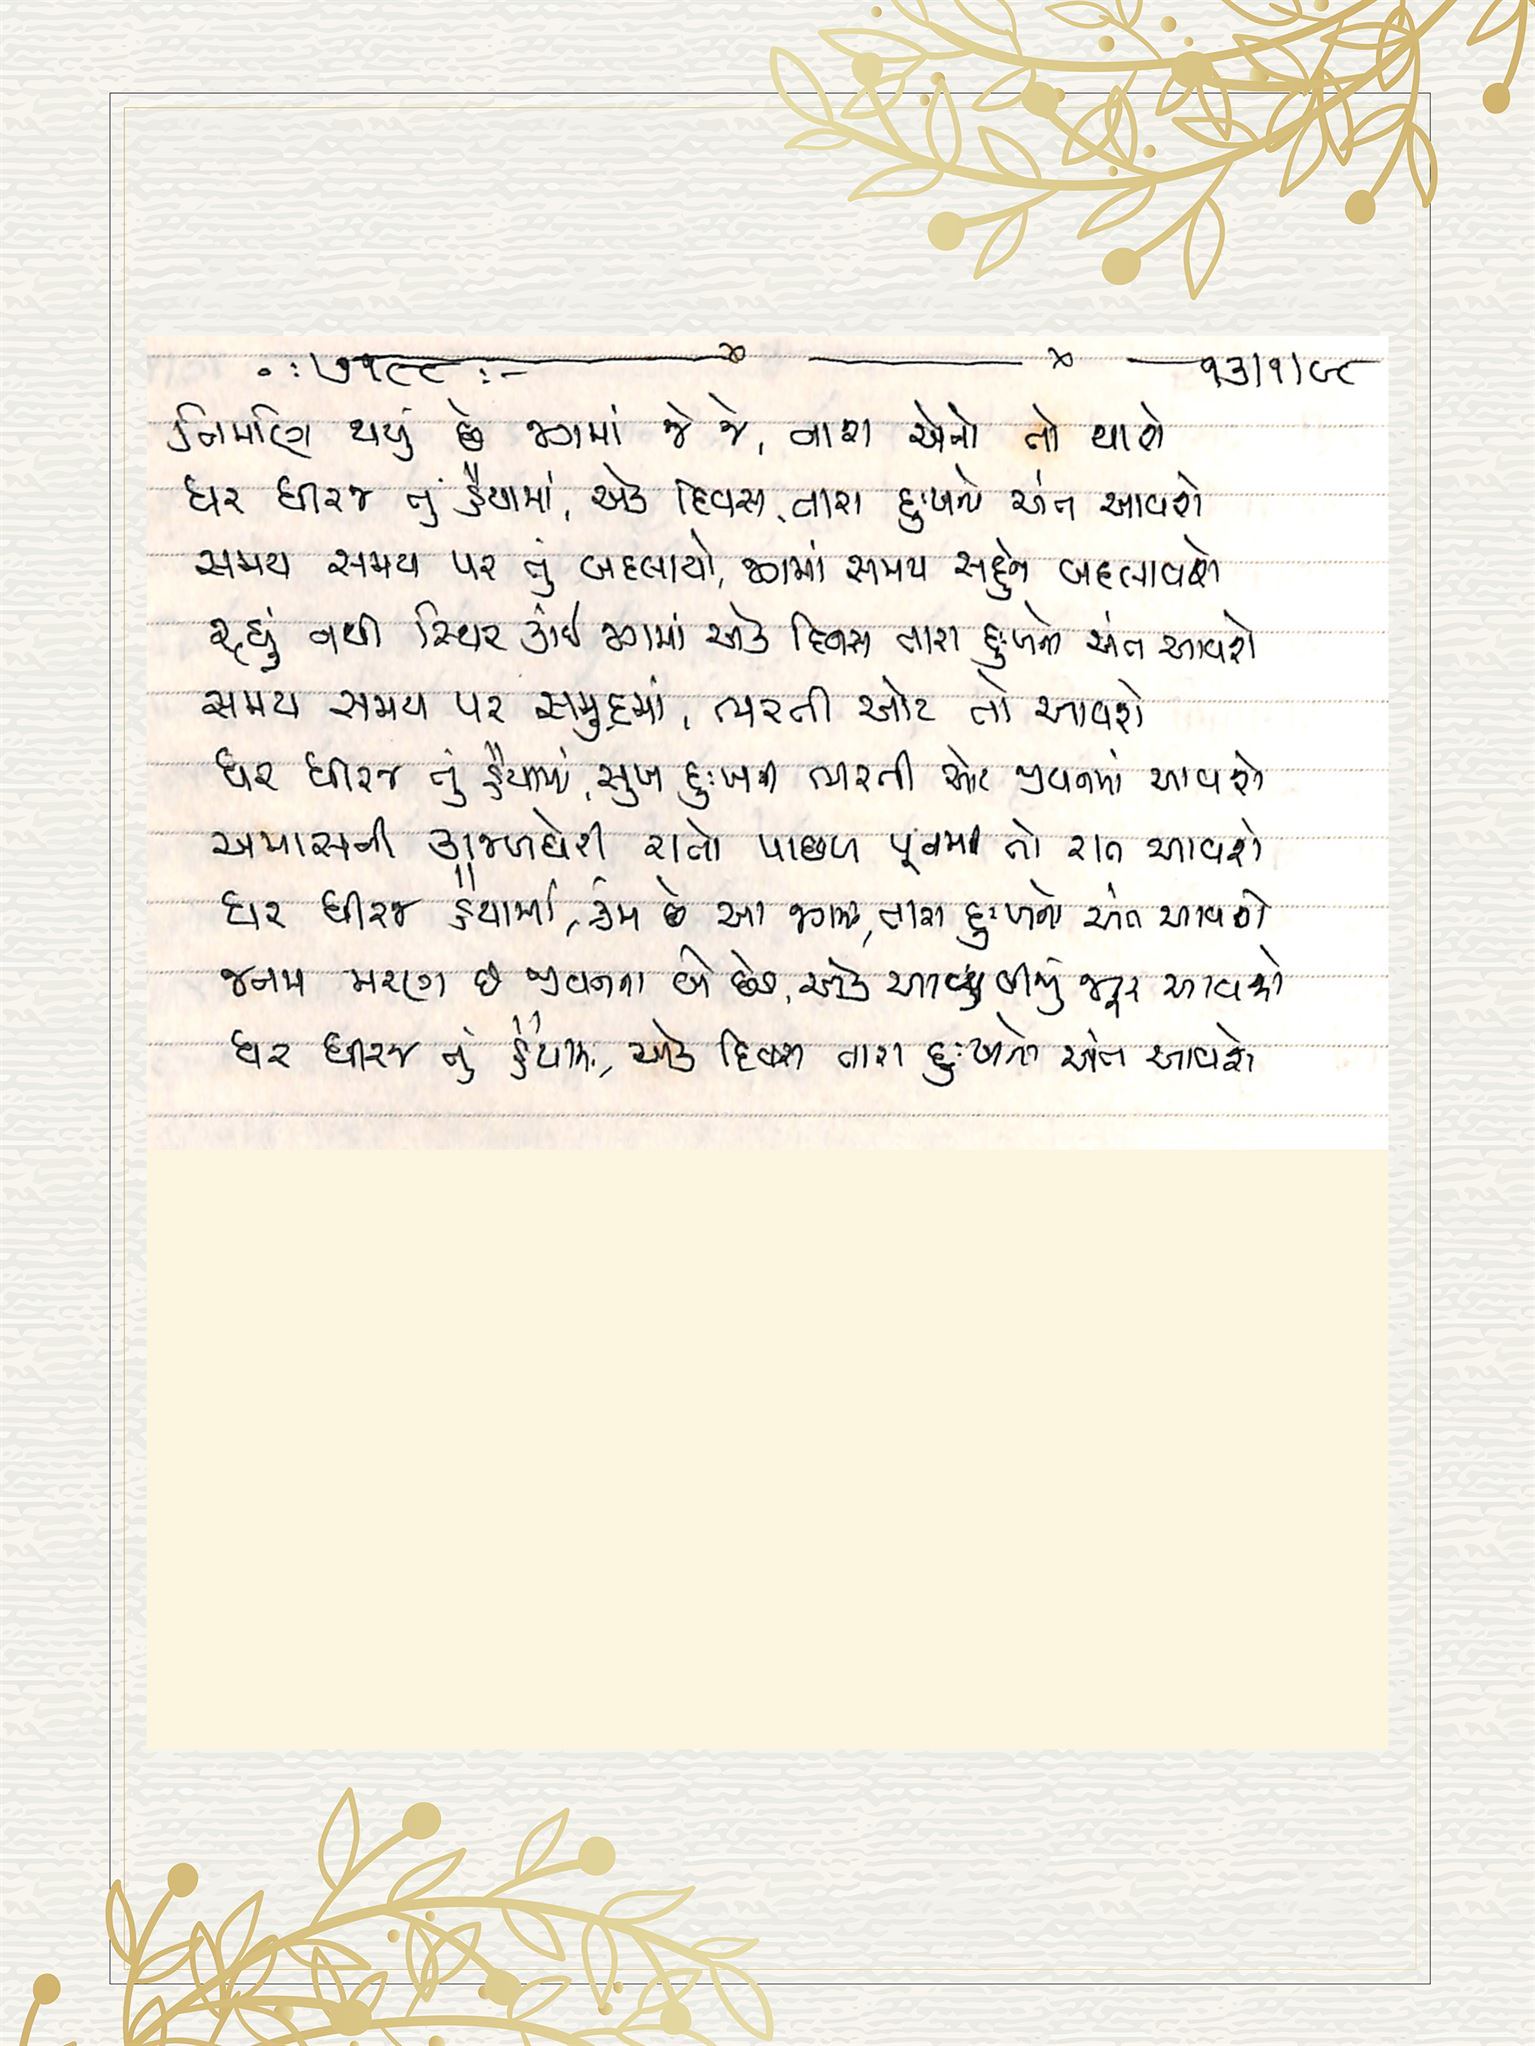 ૭૧૯૯ ૧૩/૧/૯૮
નિર્માણ થયું છે જગમાં જે જે, નાશ એનો તો થાશે
ધર ધીરજ તું હૈયામાં, એક દિવસ તારા દુઃખનો અંત આવશે
સમય સમય પર તું બદલાયો, જગમાં સમય સહુને બદલાવશે
રહ્યું નથી સ્થિર કાંઈ જગમાં એક દિવસ તારા દુઃખનો અંત આવશે
સમય સમય પર સમુદ્રમાં, ભરતી ઓટ તો આવશે
ધર ધીરજ તું હૈયામાં, સુખ દુઃખની ભરતી ઓટ જીવનમાં આવશે
અમાસની કાજળઘેરી રાતો પાછળ પૂનમની તો રાત આવશે
ધર ધીરજ હૈયામાં, ક્રમ છે આ જગનો, તારા દુઃખનો અંત આવશે
જનમ મરણ છે જીવનના બે છેડા, એક આવ્યું બીજું જરૂર આવશે
ધર ધીરજ તું હૈયામાં, એક દિવસ તારા દુઃખનો અંત આવશે